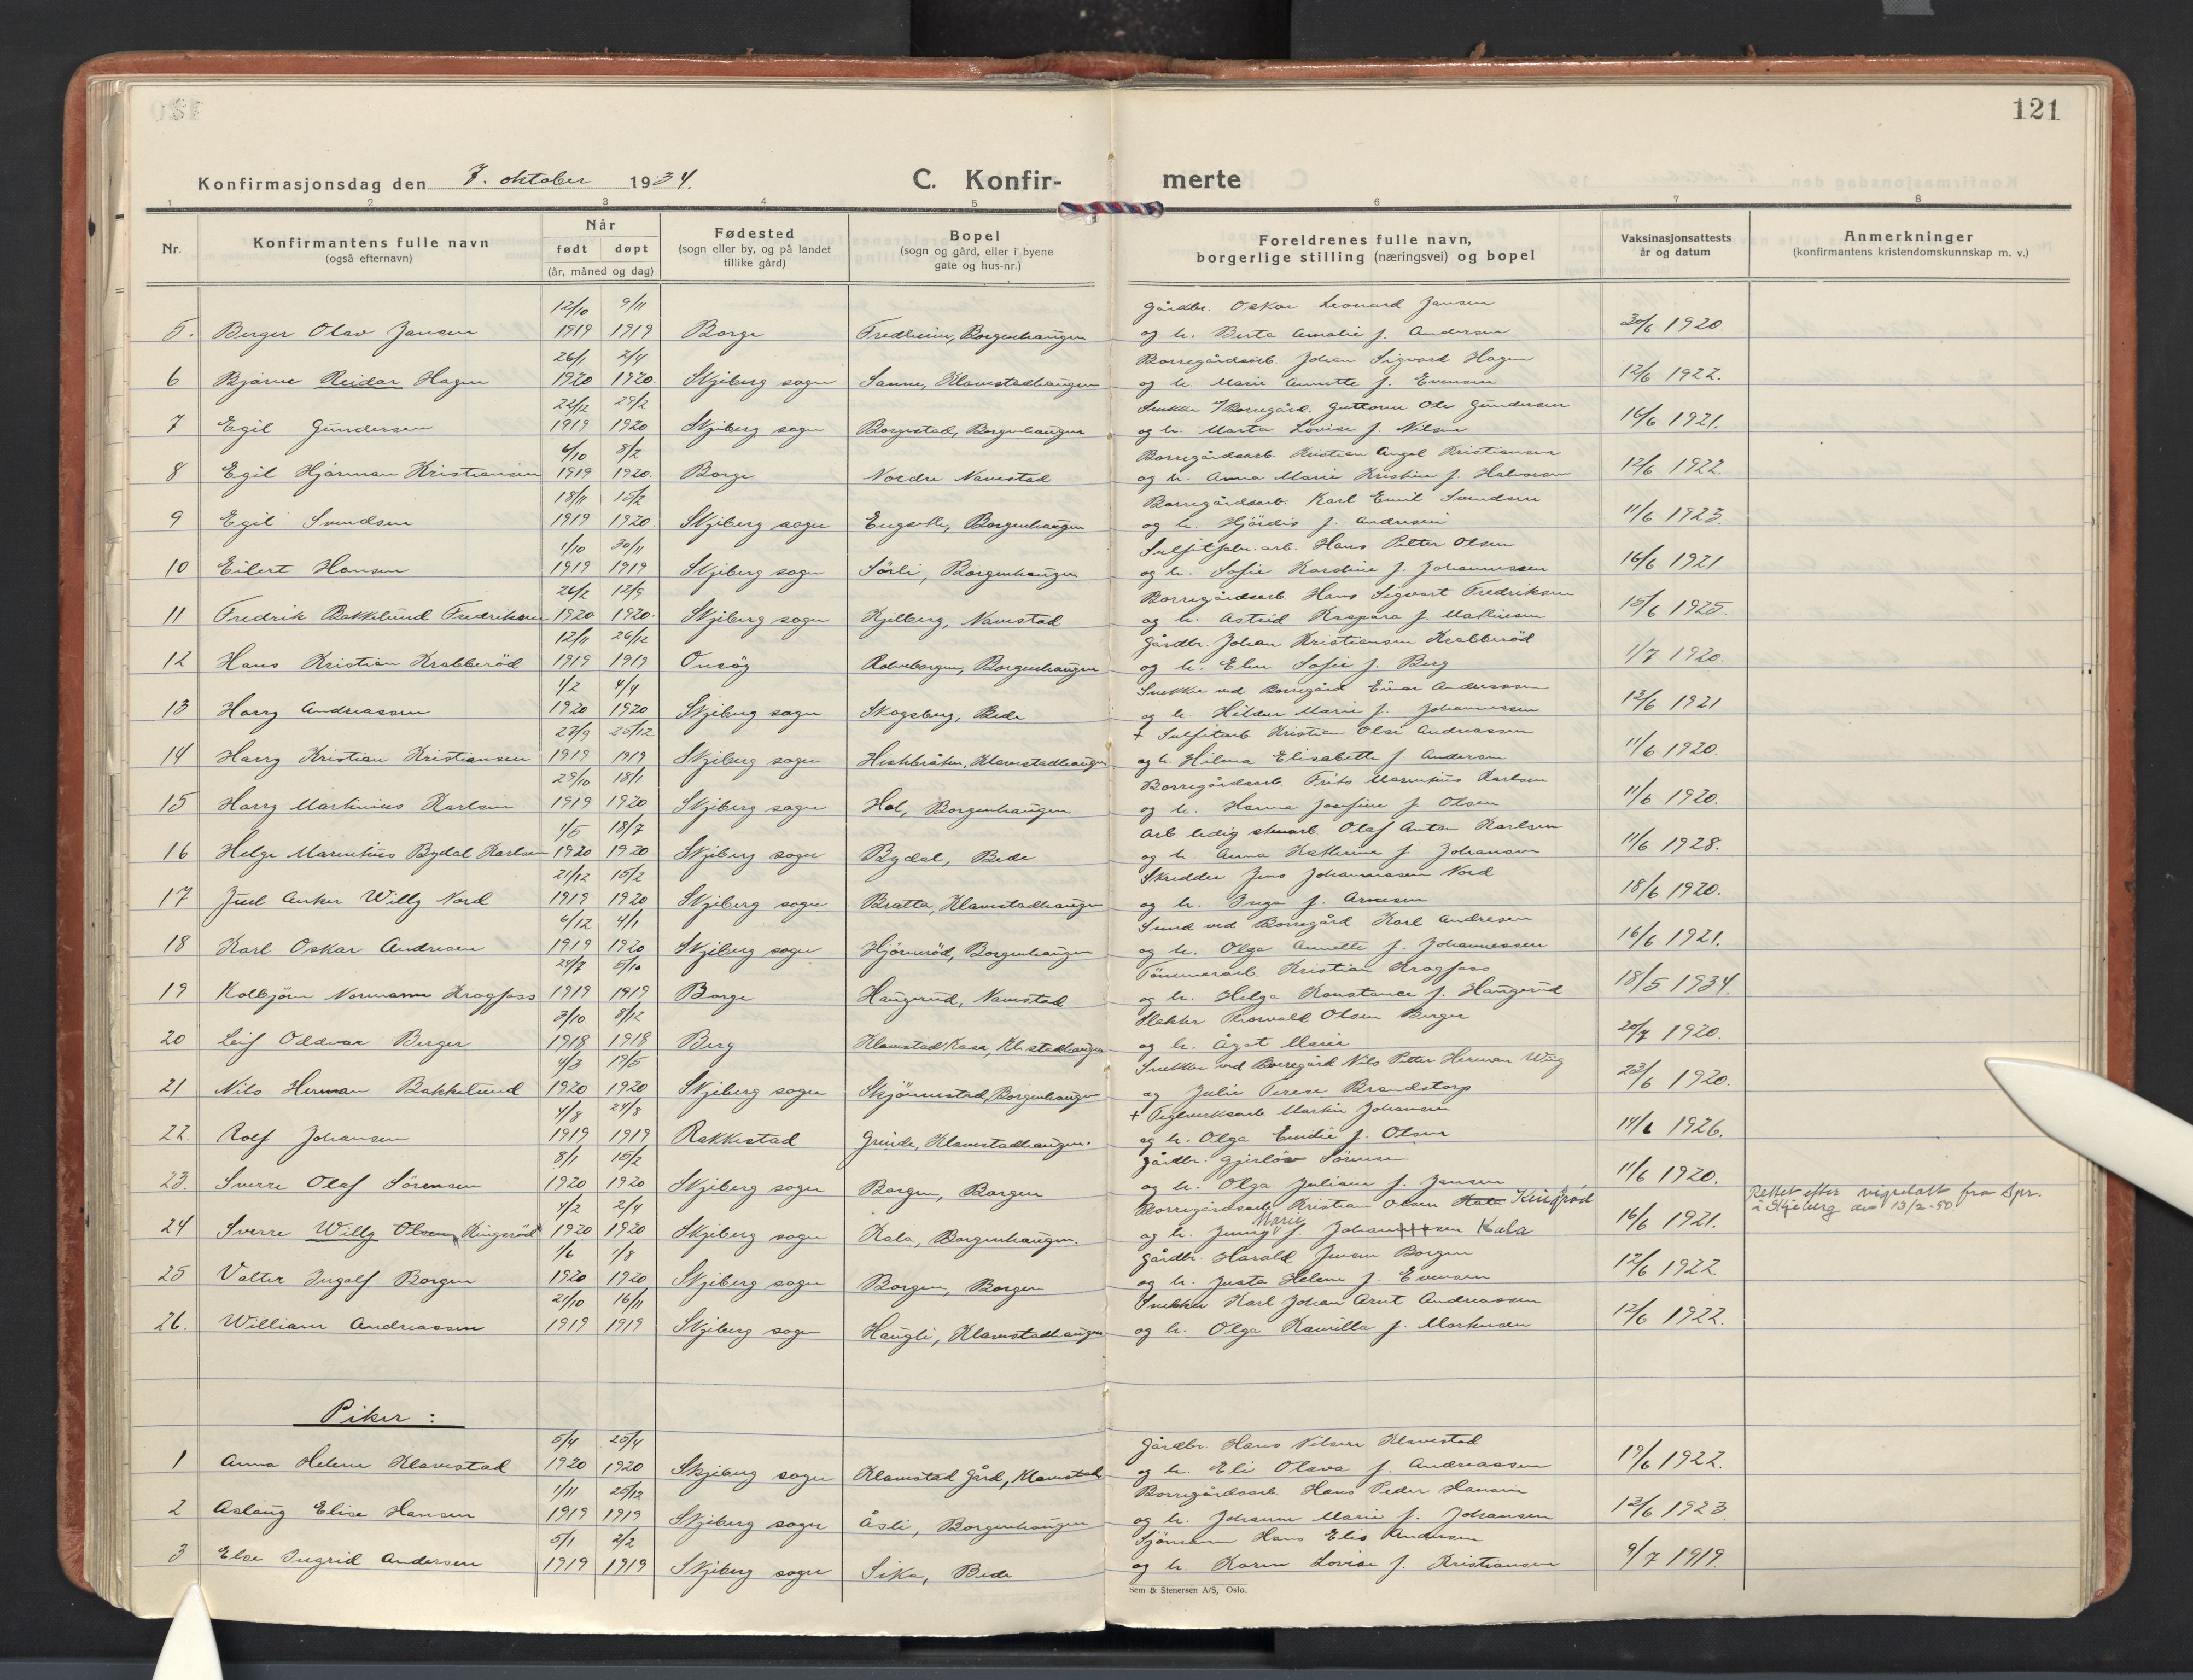 121
Konfirmasjonsdag den 7. oktober 1934.
C. Konfir-merte
1 2 3 4 5 6 7 8
Nr.
Konfirmantens fulle navn
(også efternavn)
Når
født døpt
(år, måned og dag)
Fødested
(sogn eller by, og på landet
tillike gård)
Bopel
(sogn og gård, eller i byene
gate og hus-nr.)
Foreldrenes fulle navn,
borgerlige stilling (næringsvei) og bopel
Vaksinasjonsattests
år og datum
Anmerkninger
(konfirmantens kristendomskunnskap m. v.)
12/10 9/11 Gårdbr. Oskar Leonard Jansen
5. Berger Olav Jansen 1919 1919 Borge Fredheim, Borgenhaugen og h. Berta Amalie f. Andersen 30/6 1920.
26/1 2/4 Borregårdsarb. Johan Sigvard Hagen
6 Bjarne Reidar Hagen 1920 1920. Skjeberg sogn Sanne, Klavestadhaugen og h. Marie Annette f. Evensen 12/6 1922.
22/12 29/2 Snekker v/Borregård. Guttorm Ole Gundersen
7 Egil Gundersen 1919 1920 Skjeberg sogn Borgestad, Borgenhaugen og h. Marta Lovise f. Nilsen 16/6 1921.
4/10 8/2 Borregårdsarb. Kristian Angel Kristiansen
8 Egil Hjärman Kristiansen 1919 1920. Borge Nordre Navestad og h. Anna Marie Kristine f. Halvorsen 12/6 1922.
18/11 15/2 Borregårdsarb. Karl Emil Svendsen
9 Egil Svendsen 1919 1920. Skjeberg sogn Engseth, Borgenhaugen og h. Hjördis f. Andresen 11/6 1923.
1/10 30/11 Sulfitfabr. arb. Hans Petter Olsen
10 Eilert Hansen 1919 1919 Skjeberg sogn Sörli, Borgenhaugen og h. Sofie Karoline f. Johannessen 16/6 1921
26/2 12/9 Borregårdsarb. Hans Sigvart Fredriksen
11 Fredrik Bakkelund Fredriksen 1920 1920. Skjeberg sogn Kjelberg, Navestad og h. Astrid Kaspara f. Mathisen 15/6 1925.
12/11 26/12 Gårdbr. Johan Kristiansen Krabberöd
12 Hans Kristian Krabberöd 1919 1919 Onsöy Rolvsborgen, Borgenhaugen og h. Elen Sofie f. Berg 1/7 1920.
1/2 4/4 Snekker ved Borregård Einar Andreassen
13 Harry Andreassen 1920 1920 Skjeberg sogn Skogsberg, Bede og h. Hildur Marie f. Johannessen 13/6 1921
23/9 25/12 + Sulfitarb Kristian Olai Andreassen
14 Harry Kristian Kristiansen 1919 1919 Skjeberg sogn Klavestadhaugen og h. Hilma Elisabeth f. Andersen 11/6 1920.
29/10 18/1 Borregårdsarb. Frits Marentius Karlsen
15 Harry Martinius Karlsen 1919 1920 Skjeberg sogn Hol, Borgenhaugen. og h. Hanna Josefine f. Olsen 11/6 1920.
1/5 18/7 Arb. ledig Olaf Anton Karlsen
16 Helge Marentius Bydal Karlsen 1920 1920 Skjeberg sogn Bydal, Bede og h. Anna Katherine f. Johansen 11/6 1928.
21/12 15/2 Skredder Jens Johannessen Nord
17 Juel Anker Willy Nord 1919 1920 Skjeberg sogn Bratta, Klavestadhaugen og h. Inga f. Arnesen 18/6 1920.
6/12 4/1 Smed ved Borregård Karl Andresen
18 Karl Oskar Andresen 1919 1920 Skjeberg sogn Hjörneröd, Borgenhaugen og h. Olga Annette f. Johannessen 16/6 1921.
24/7 5/10 Tömmerarb Kristian Kragfoss
19 Kolbjörn Normann Kragfoss 1919 1919 Borge Haugerud, Navestad og h. Helga Konstance f. Haugerud 18/5 1934.
3/10 8/12 Slakter Thorvald Olsen Berger
20 Leif Oddvar Berger 1918 1918 Berg Klavestad Kasa, Kl.stadhaugen og h. Ågot Marie 20/7 1920.
4/3 19/5 Snekker ved Borregård Nils Petter Herman Wiig
21 Nils Herman Bakkelund 1920 1920 Skjeberg sogn Skjönnestad, Borgenhaugen og Julie Terese Brandstorp 23/6 1920.
4/8 24/8 + Teglverksarb. Martin Johansen
22. Rolf Johansen 1919 1919 Rakkestad Grinde, Klavestadhaugen. og h. Olga Emilie f. Olsen 14/6 1926.
8/1 15/2 Gårdbr. Gjerlöv Sörensen
23. Sverre Olaf Sörensen 1920 1920 Skjeberg sogn Borgen, Borgen og h. Olga Juliane f. Jensen 11/6 1920.
4/2 2/4 Borregårdsarb. Kristian Olsen Kala Kingsröd Rettet efter vigselatt fra Spr.
24 Sverre Willy Olsen Kingsröd 1920 1920 Skjeberg sogn Kala, Borgenhaugen. og h. Jenny Marie f. Johannessen Kala 16/6 1921. i Skjeberg av 13/2-50
1/6 1/8 Gårdbr. Harald Jensen Borgen
25 Valter Ingolf Borgen 1920 1920 Skjeberg sogn Borgen, Borgen og h. Justa Helene f. Evensen 12/6 1922
21/10 16/11 Snekker Karl Johan Arnt Andreassen
26. William Andreassen 1919 1919 Skjeberg sogn Haugli, Klavestadhaugen og h. Olga Kamilla f. Markussen 12/6 1922.
Piker :
5/4 25/4 Gårdbr. Hans Nilsen Klavestad
1 Anna Helene Klavestad 1920 1920 Skjeberg sogn Klavestad gård, Klavestad og h. Eli Olava f. Andreassen 19/6 1922.
1/11 25/12 Borregårdsarb. Hans Peder Hansen
2 Aslaug Elise Hansen 1919 1919 Skjeberg sogn Åsli, Borgenhaugen og h. Johanne Marie f. Johansen 12/6 1923.
5/1 2/2 Sjömann Hans Elis Andersen
3 Else Ingrid Andersen 1919 1919 Skjeberg sogn Sika, Bede og h. Karen Lovise f. Kristiansen 9/7 1919.
Sem & Stenersen A/S, Oslo.